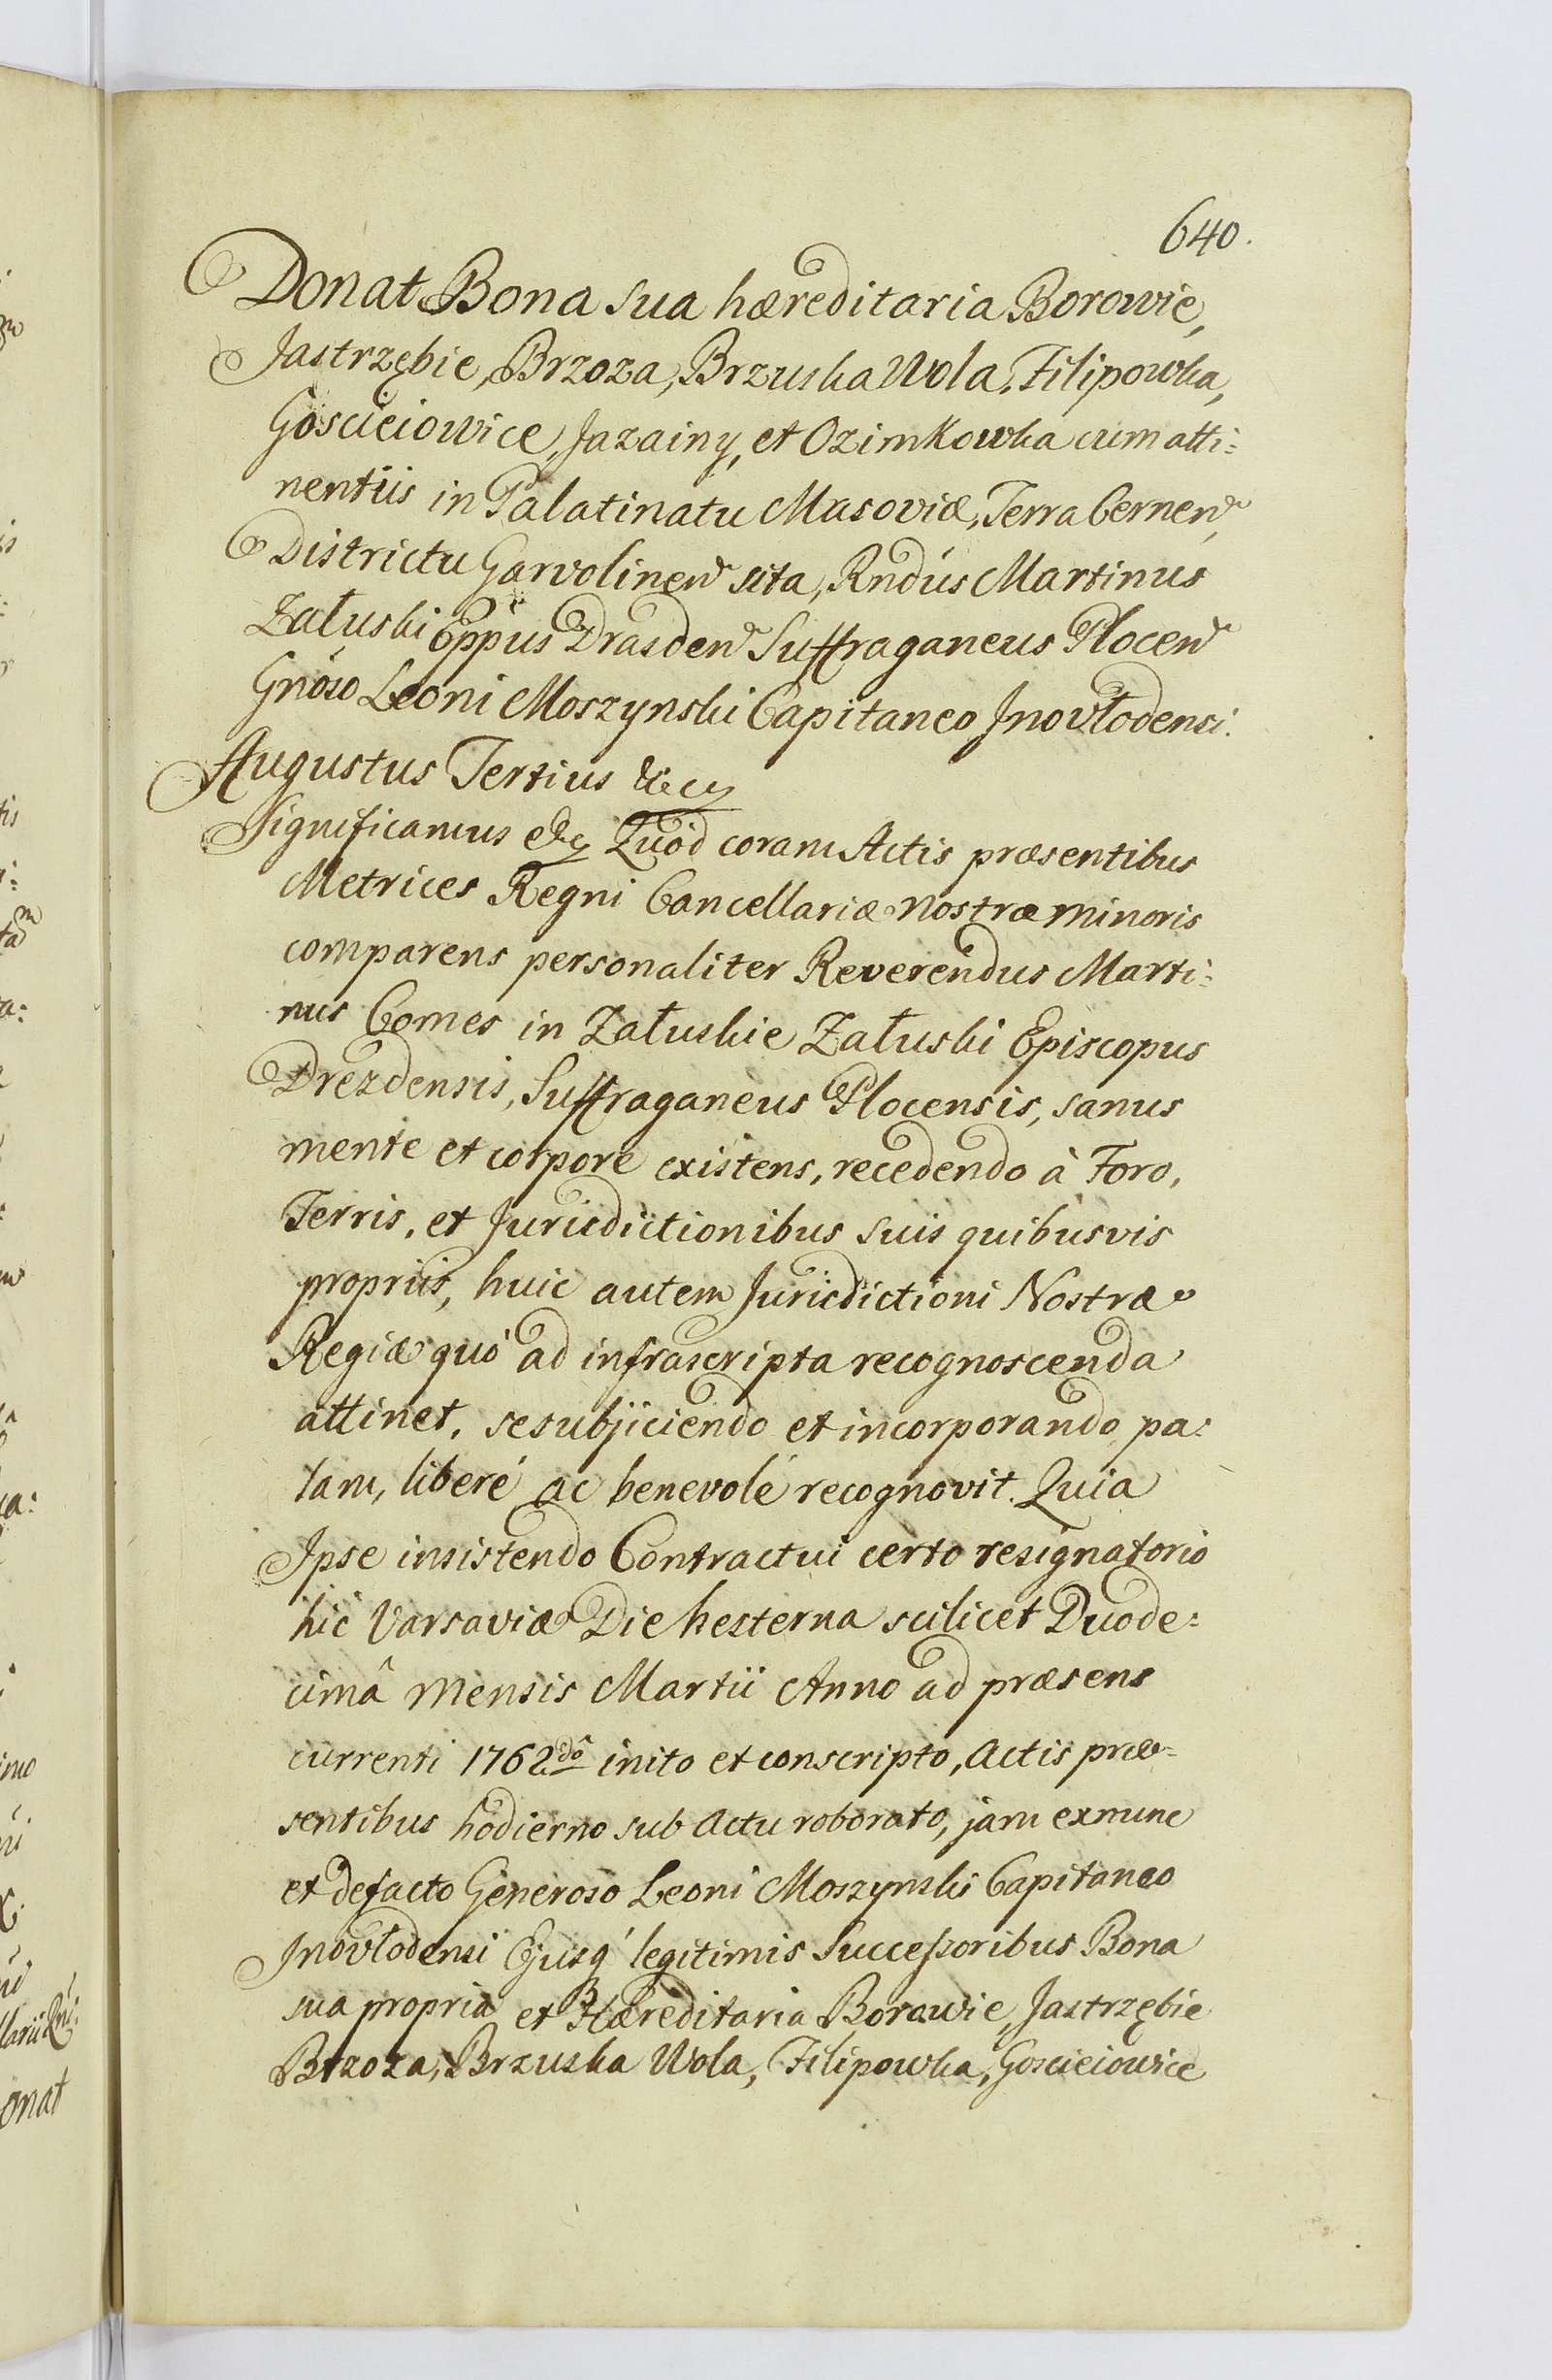 640.
Donat Bona sua hæreditaria Borowie,
Jastrzębie, Brzoza, Brzuska Wola, Filipowka,
Goscieiowice, Jazainy, et Ozimkowka cum atti:
nentiis in Palatinatu Masoviæ, Terra Cernen,
Districtu Garvolinen sita, Rndus Martinus
Załuski Eppus Drasden Suffraganeus Plocen
Gnoso Leoni Moszynski Capitaneo Inovłodensi.
Augustus Tertius &c
Significamus &c Quód coram Actis præsentibus
Metrices Regni Cancellariæ nostræ minoris
comparens personaliter Reverendus Marti:
nus Comes in Załuskie Załuski Episcopus
Drezdensis, Suffraganeus Plocensis, sanus
mente et corpore existens, recedendo à Foro,
Terris, et Jurisdictionibus suis quibusvis
propriis, huic autem Jurisdictioni Nostræ
Regiæ quò ad infrascripta recognoscenda
attinet, se subjiciendo et incorporando pa:
lam, liberé ac benevolé recognovit. Quia
Ipse insistendo Contractui certo resignatorio
hic Varsaviæ Die hesterna scilicet Duode:
cimâ mensis Martii Anno ad præsens
currenti 1762dô inito et conscripto, Actis præ=
sentibus hodierno sub Actu roborato, jam exnunc
et defacto Generoso Leoni Moszynski Capitaneo
Inovłodensi Ejusq' legitimis Successoribus Bona
sua propria et Hæreditaria Borowie, Jastrzębie
Brzoza, Brzuska Wola, Filipowka, Goscieiowice